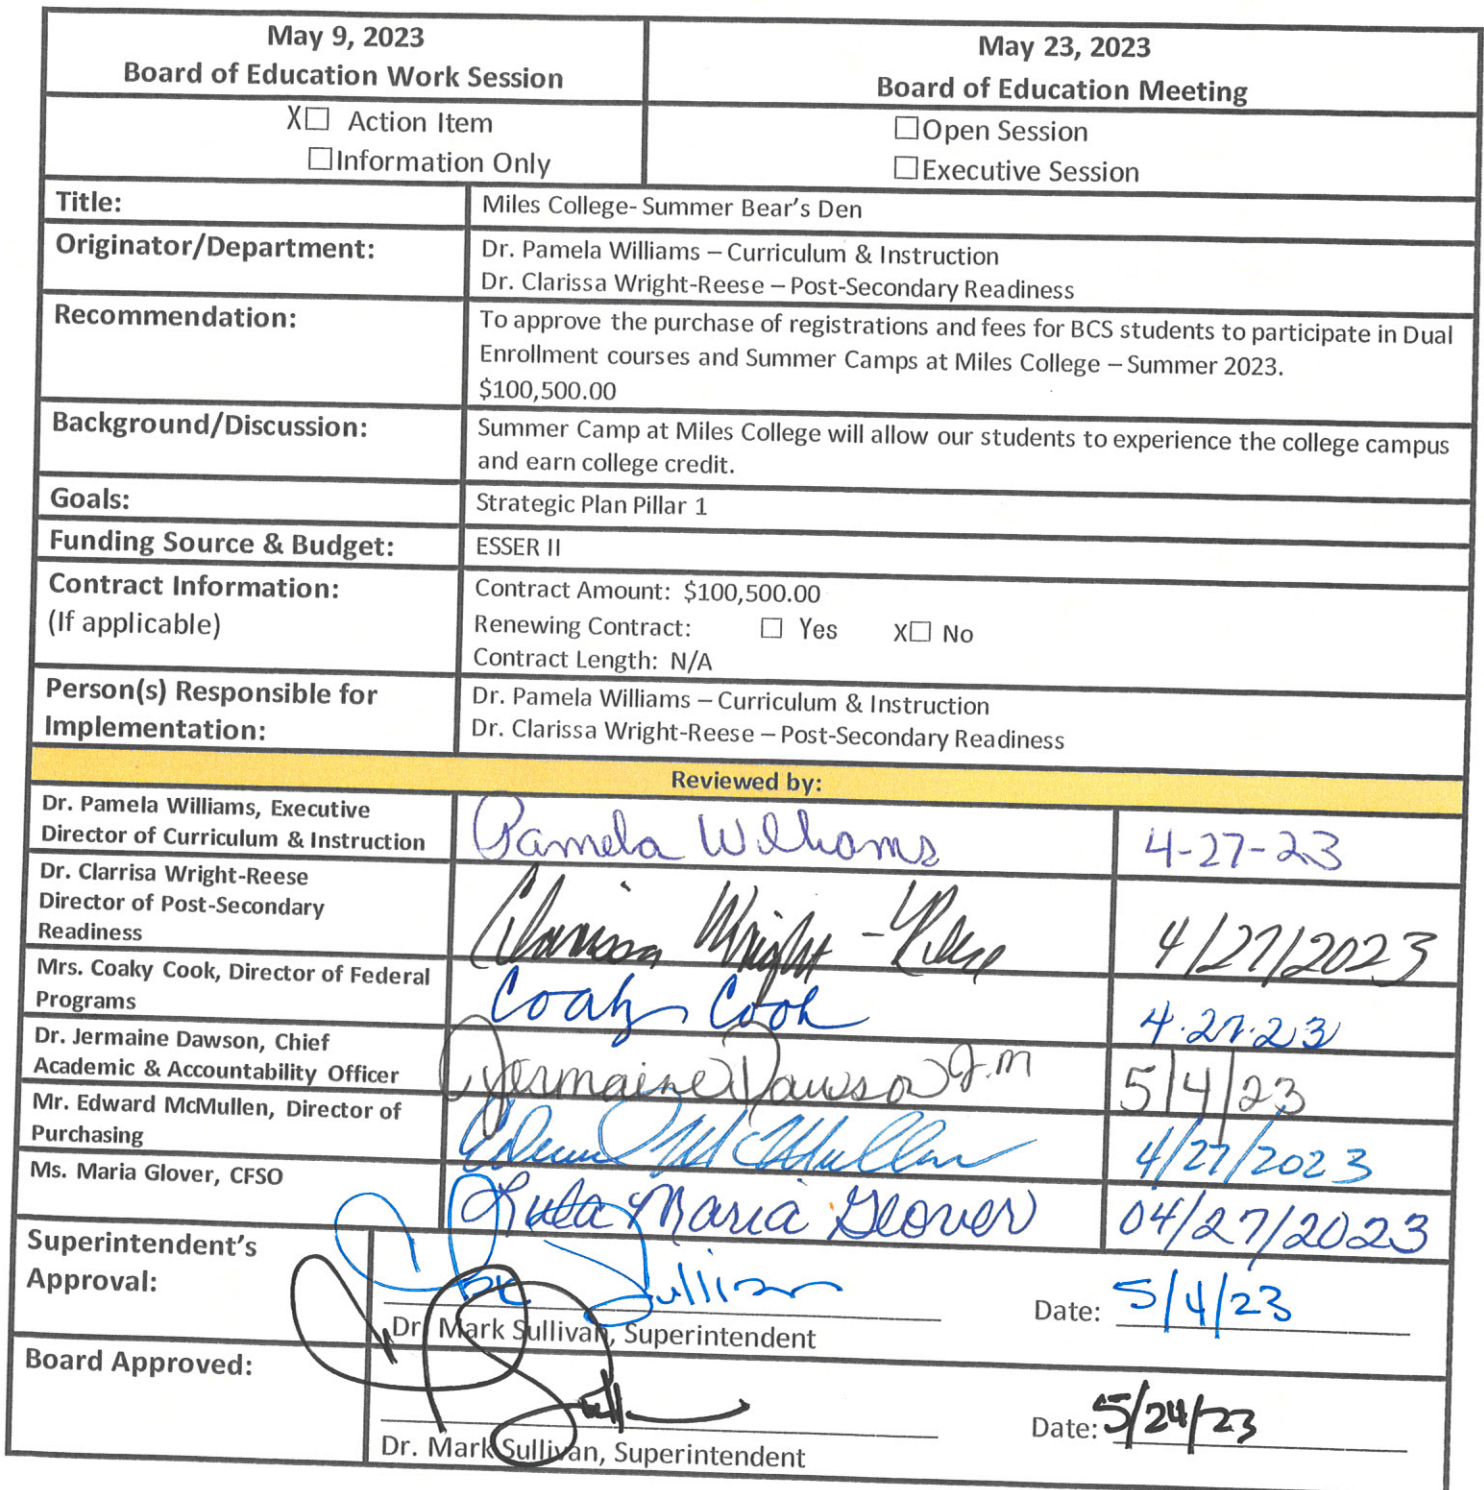 May 9, 2023
Board of Education Work Session
May 23, 2023
Board of Education Meeting
X☐ Action Item
☐Information Only
☐Open Session
☐Executive Session
Title:
Miles College- Summer Bear's Den
Originator/Department:
Dr. Pamela Williams – Curriculum & Instruction
Dr. Clarissa Wright-Reese – Post-Secondary Readiness
Recommendation:
To approve the purchase of registrations and fees for BCS students to participate in Dual
Enrollment courses and Summer Camps at Miles College – Summer 2023.
$100,500.00
Background/Discussion:
Summer Camp at Miles College will allow our students to experience the college campus
and earn college credit.
Goals:
Strategic Plan Pillar 1
Funding Source & Budget:
ESSER II
Contract Information:
(If applicable)
Contract Amount: $100,500.00
Renewing Contract: ☐ Yes X☐ No
Contract Length: N/A
Person(s) Responsible for
Implementation:
Dr. Pamela Williams – Curriculum & Instruction
Dr. Clarissa Wright-Reese – Post-Secondary Readiness
Reviewed by:
Dr. Pamela Williams, Executive
Director of Curriculum & Instruction
Pamela Williams
4-27-23
Dr. Clarrisa Wright-Reese
Director of Post-Secondary
Readiness
Clarissa Wright-Reese
4/27/2023
Mrs. Coaky Cook, Director of Federal
Programs
Coaky Cook
4.27.23
Dr. Jermaine Dawson, Chief
Academic & Accountability Officer
Jermaine Dawson J.M
5/4/23
Mr. Edward McMullen, Director of
Purchasing
Edward McMullen
4/27/2023
Ms. Maria Glover, CFSO
Lula Maria Glover
04/27/2023
Superintendent's
Approval:
Sullivan
Dr. Mark Sullivan, Superintendent
Date: 5/4/23
Board Approved:
Dr. Mark Sullivan, Superintendent
Date: 5/24/23